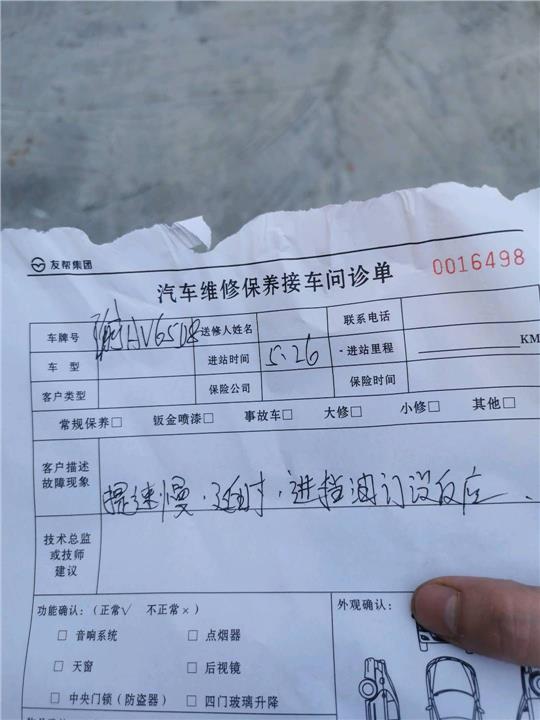 友帮集团
汽车维修保养接车问诊单
0016498
车牌号 HV65D8 送修人姓名 联系电话
车型 进站时间 5.26 进站里程 KM
客户类型 保险公司 保险时间
常规保养□ 钣金喷漆□ 事故车□ 大修□ 小修□ 其他□
客户描述
故障现象
提速慢.延时.进挡油门没反应.
技术总监
或技师
建议
功能确认：(正常√ 不正常×) 外观确认：
□ 音响系统 □ 点烟器
□ 天窗 □ 后视镜
□ 中央门锁(防盗器) □ 四门玻璃升降